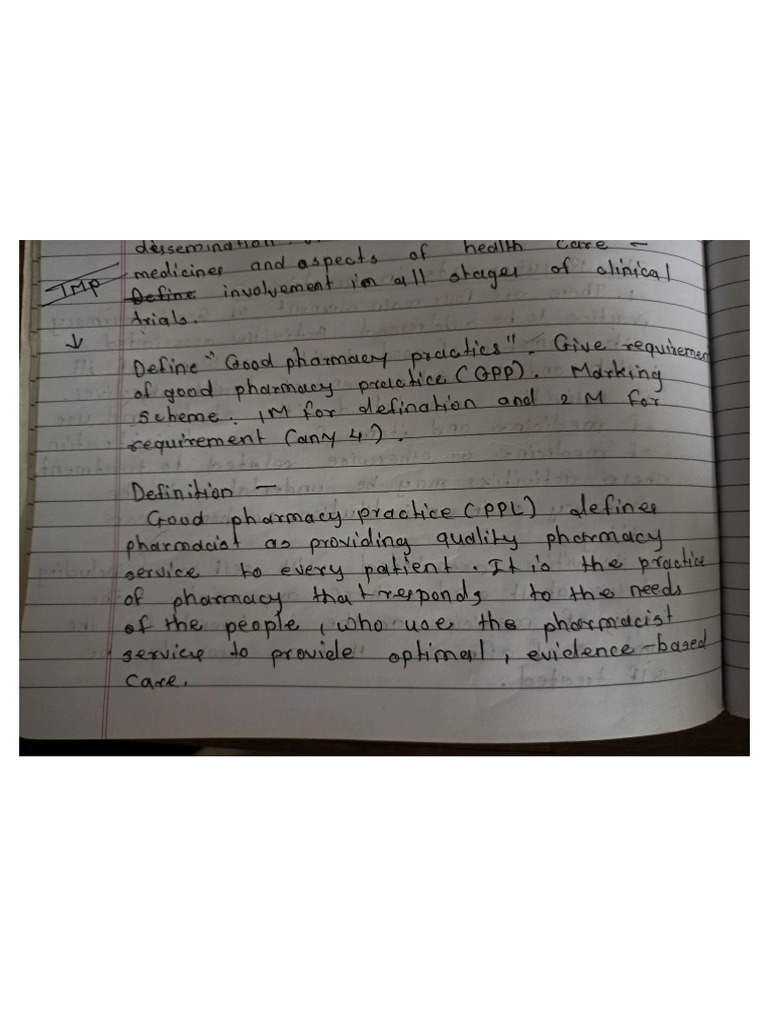 dessemination
medicines and aspects of health care –
IMP
Define involvement in all stages of clinical
trials.
↓
Define "Good pharmacy practics". Give requiremen
of good pharmacy practice (GPP). Marking
scheme. 1M for defination and 2 M for
requirement (any 4).
Definition –
Good pharmacy practice (PPL) defines
pharmacist as providing quality pharmacy
service to every patient. It is the practice
of pharmacy that responds to the needs
of the people, who use the pharmacist
service to provide optimal, evidence-based
care.